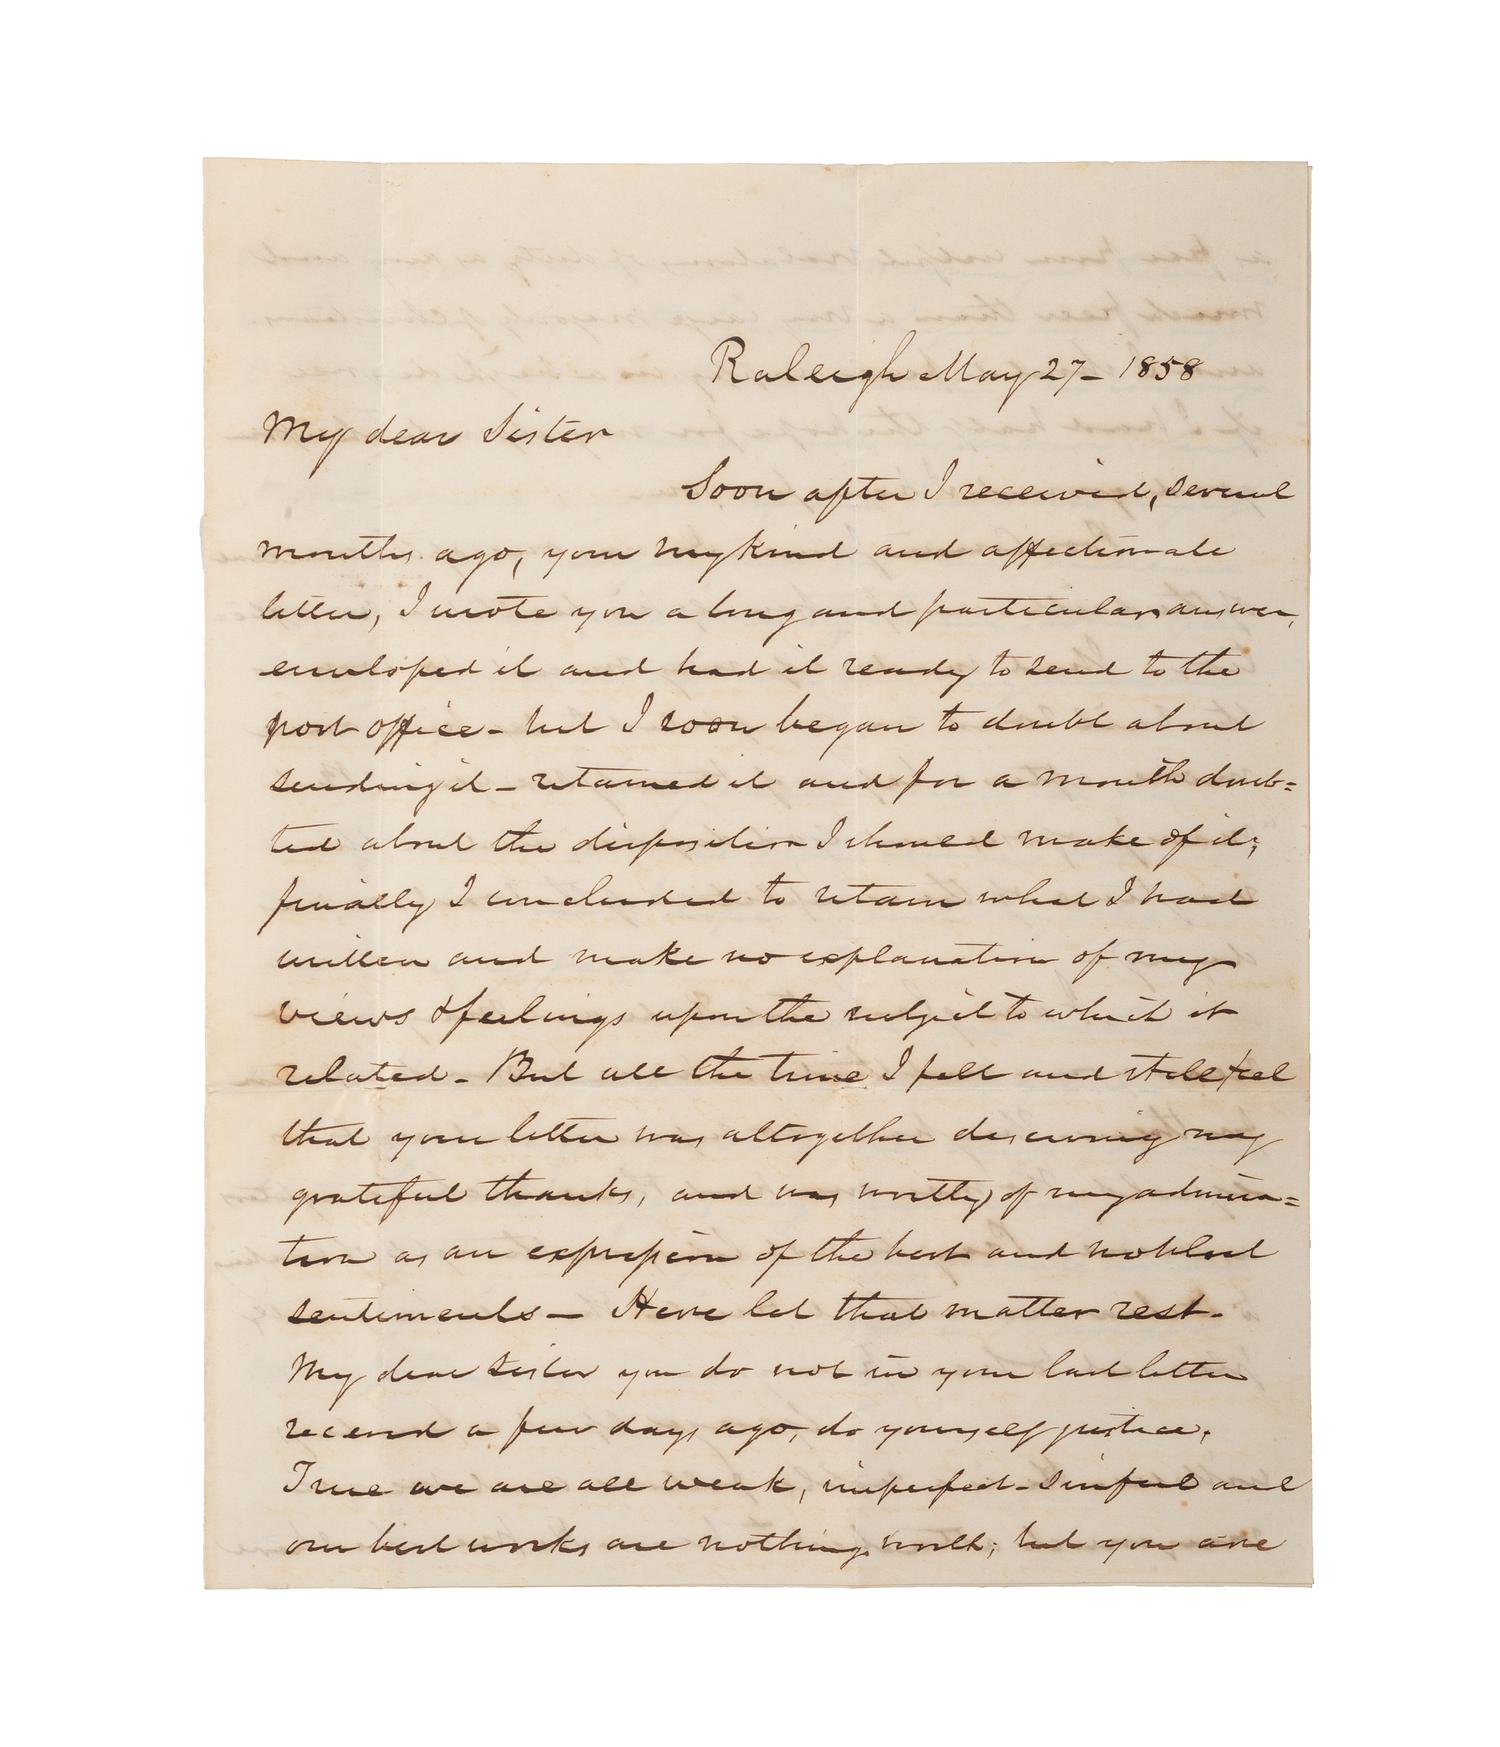 Raleigh May 27 - 1858
My dear Sister
Soon after I received, several
months ago, your very kind and affectionate
letter, I wrote you a long and particular answer,
enveloped it and had it ready to send to the
post office - but I soon began to doubt about
sending it - retained it and for a month doub=
ted about the disposition I should make of it;
finally I concluded to retain what I had
written and make no explanation of my
views & feelings upon the subject to which it
related - But all the time I felt and still feel
that your letter was altogether deserving my
grateful thanks, and was worthy of my admira=
tion as an expression of the best and noblest
sentiments — Here let that matter rest -
My dear sister you do not in your last letter
received a few days ago, do yourself justice.
True we are all weak, imperfect - sinful and
our best works are nothing worth; but you are